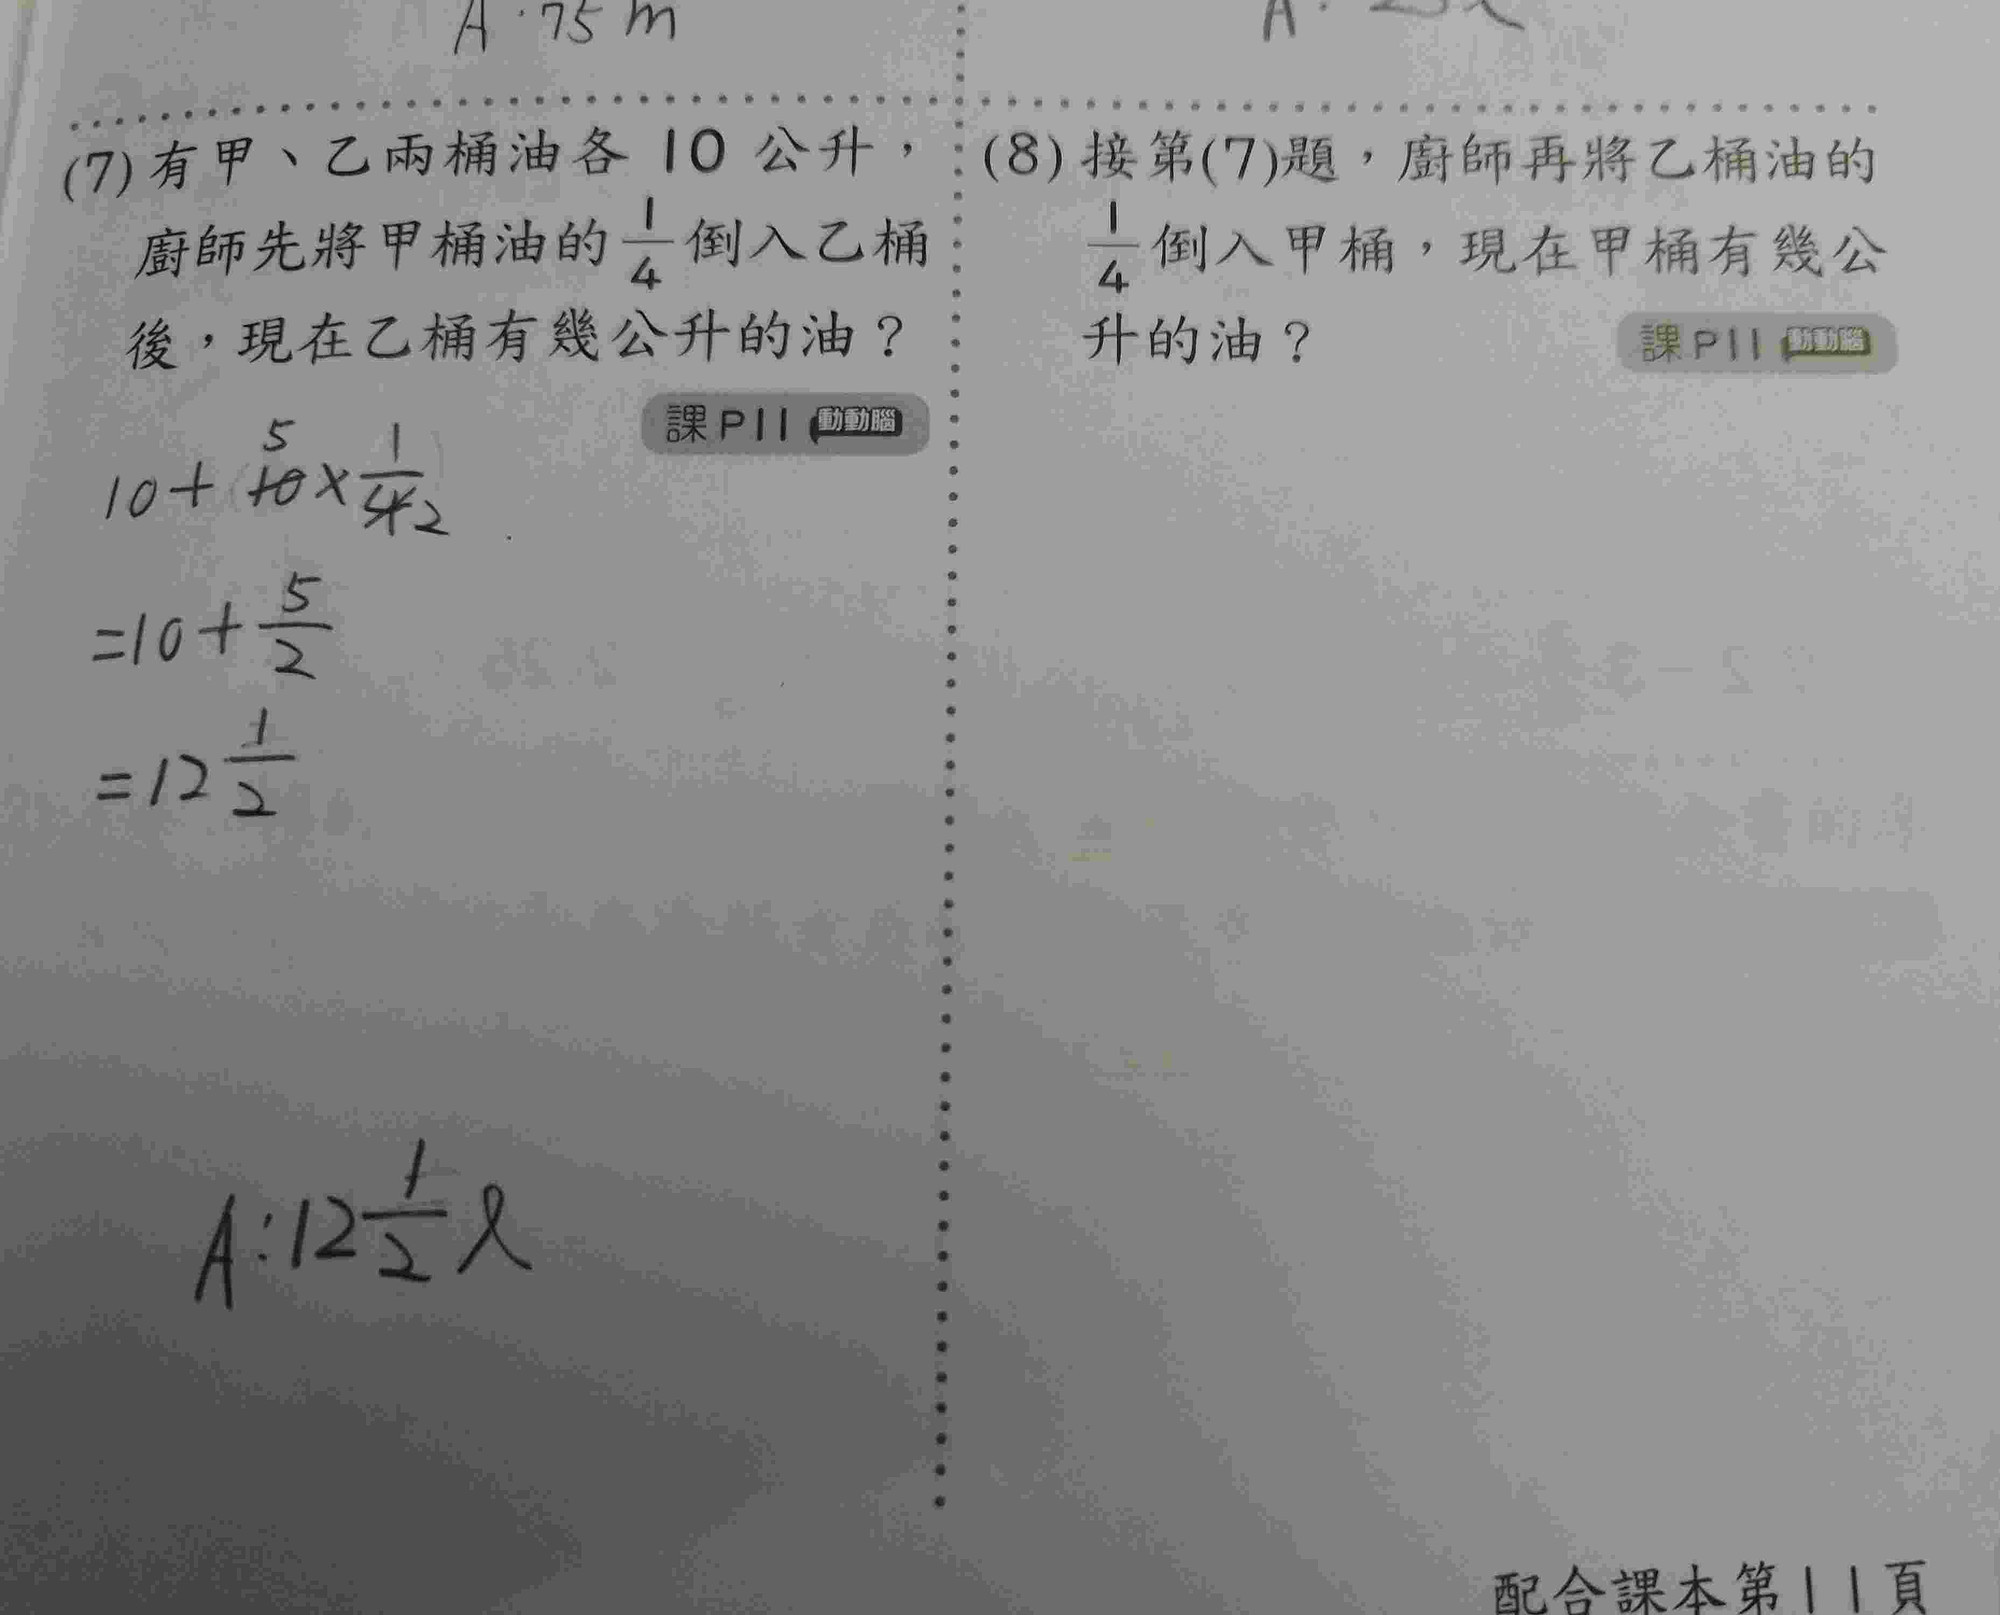 A:75 m
(7)有甲、乙兩桶油各 10 公升，
廚師先將甲桶油的 1/4 倒入乙桶
後，現在乙桶有幾公升的油？
課P11 動動腦
10+10×1/4
5
2
=10+5/2
=12 1/2
A:12 1/2 ℓ
(8)接第(7)題，廚師再將乙桶油的
1/4 倒入甲桶，現在甲桶有幾公
升的油？
課P11 動動腦
配合課本第11頁